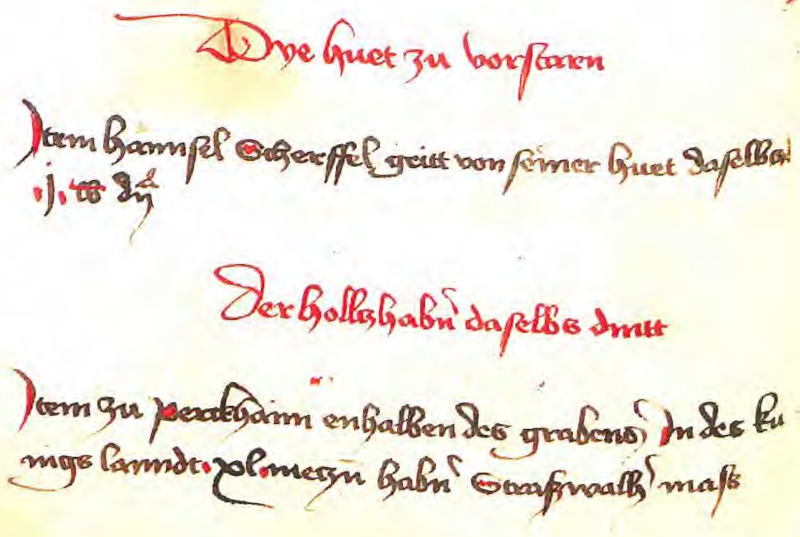 Dye huet zu vorstarn
Item hannsel Scherffel geitt von seiner huet daselbs
.j. tb dn
Der holtzhabern daselbs dintt
Item zu perckhaim enhalben des grabens In des ku
nigs lanndt .xl. metzn habern Straswalher mass